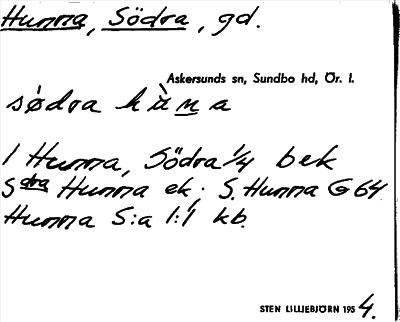 Hunna, Södra, gd.
Askersunds sn, Sundbo hd, Ör. l.
södra hùna
1 Hunna, Södra 1/4 bek
Sdra Hunna ek; S. Hunna G 64
Hunna S:a 1:1 kb.
STEN LILLIEBJÖRN 1954.